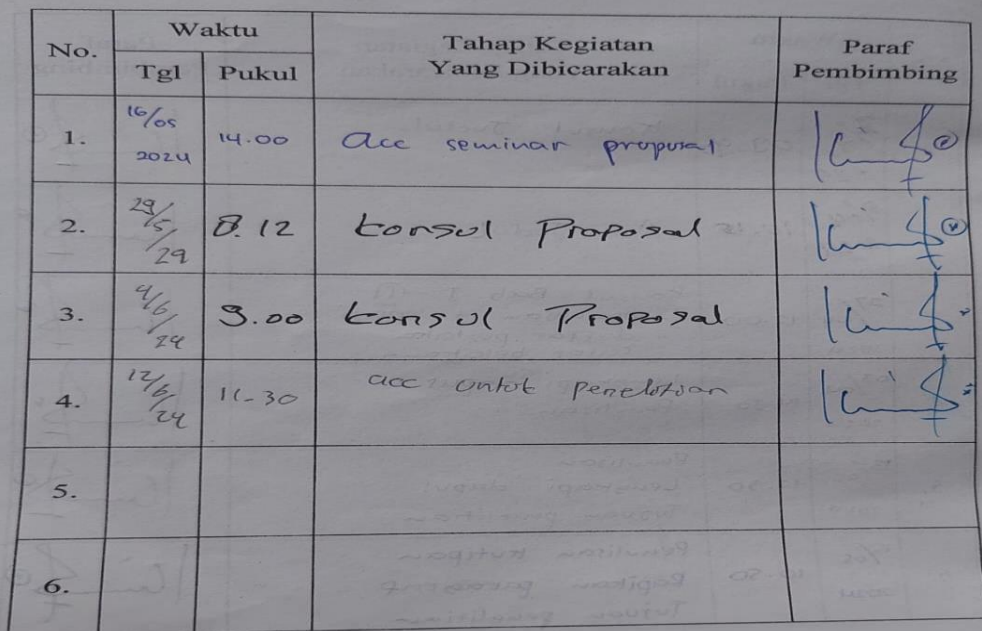 No. Waktu Tahap Kegiatan Yang Dibicarakan Paraf Pembimbing
Tgl Pukul
1. 16/05 2024 14.00 acc seminar proposal
2. 29/5/24 8.12 konsul Proposal
3. 4/6/24 9.00 konsul Proposal
4. 12/6/24 11-30 acc untuk penelitian
5.
6.